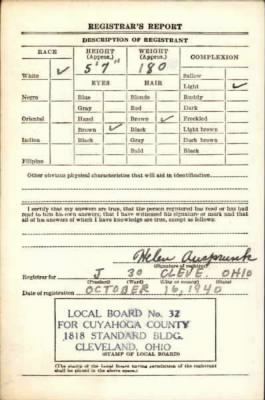 REGISTRAR'S REPORT
DESCRIPTION OF REGISTRANT
RACE HEIGHT (Approx.) WEIGHT (Approx.) COMPLEXION
5'7" 180
White ✓ EYES HAIR Sallow
Light ✓
Negro Blue Blonde Ruddy
Gray Red Dark
Oriental Hazel Brown ✓ Freckled
Brown ✓ Black Light brown
Indian Black Gray Dark brown
Bald Black
Filipino
Other obvious physical characteristics that will aid in identification
I certify that my answers are true; that the person registered has read or has had
read to him his own answers; that I have witnessed his signature or mark and that
all of his answers of which I have knowledge are true, except as follows:
Helen
(Signature of registrar)
Registrar for J 30 CLEVE. OHIO
(Precinct) (Ward) (City or county) (State)
Date of registration OCTOBER 16, 1940
LOCAL BOARD No. 32
FOR CUYAHOGA COUNTY
1818 STANDARD BLDG.
CLEVELAND, OHIO
(STAMP OF LOCAL BOARD)
(The stamp of the Local Board having jurisdiction of the registrant
shall be placed in the above space.)